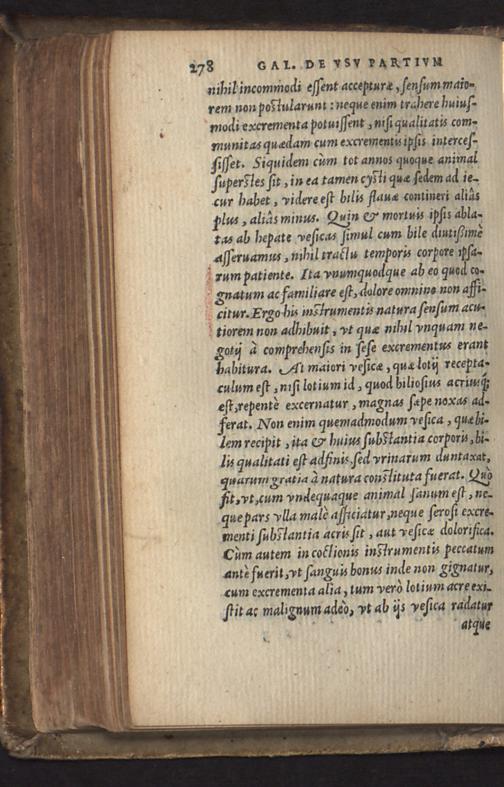 278 GAL. DE VSV PARTIVM
nihil incommodi essent acceptura, sensum maio-
rem non postularunt: neque enim trahere huius-
modi excrementa potuissent, nisi qualitatis com-
munitas quædam cum excrementis ipsis interces-
sisset. Siquidem cùm tot annos quoque animal
superstes sit, in ea tamen cysti quæ sedem ad ie-
cur habet, videre est bilis flauæ contineri aliâs
plus, aliâs minus. Quin & mortuis ipsis abla-
tas ab hepate vesicas simul cum bile diutissimè
asseruamus, nihil tractu temporis corpore ipsa-
rum patiente. Ita vnumquodque ab eo quod co-
gnatum ac familiare est, dolore omnino non affi-
citur. Ergo his instrumentis natura sensum acu-
tiorem non adhibuit, vt quæ nihil vnquam ne-
gotij à comprehensis in sese excrementus erant
habitura. At maiori vesicæ, quæ lotij recepta-
culum est, nisi lotium id, quod biliosius acriusq́;
est, repentè excernatur, magnas sæpe noxas ad-
ferat. Non enim quemadmodum vesica, quæ bi-
lem recipit, ita & huius substantia corporis, bi-
lis qualitati est adfinis, sed vrinarum duntaxat,
quarum gratia à natura constituta fuerat. Quò
fit, vt, cum vndequaque animal sanum est, ne-
que pars vlla malè afficiatur, neque serosi excre-
menti substantia acris sit, aut vesicæ dolorifica.
Cùm autem in coctionis instrumentis peccatum
antè fuerit, vt sanguis bonus inde non gignatur,
cum excrementa alia, tum verò lotium acre exi-
stit ac malignum adeò, vt ab ijs vesica radatur
atque